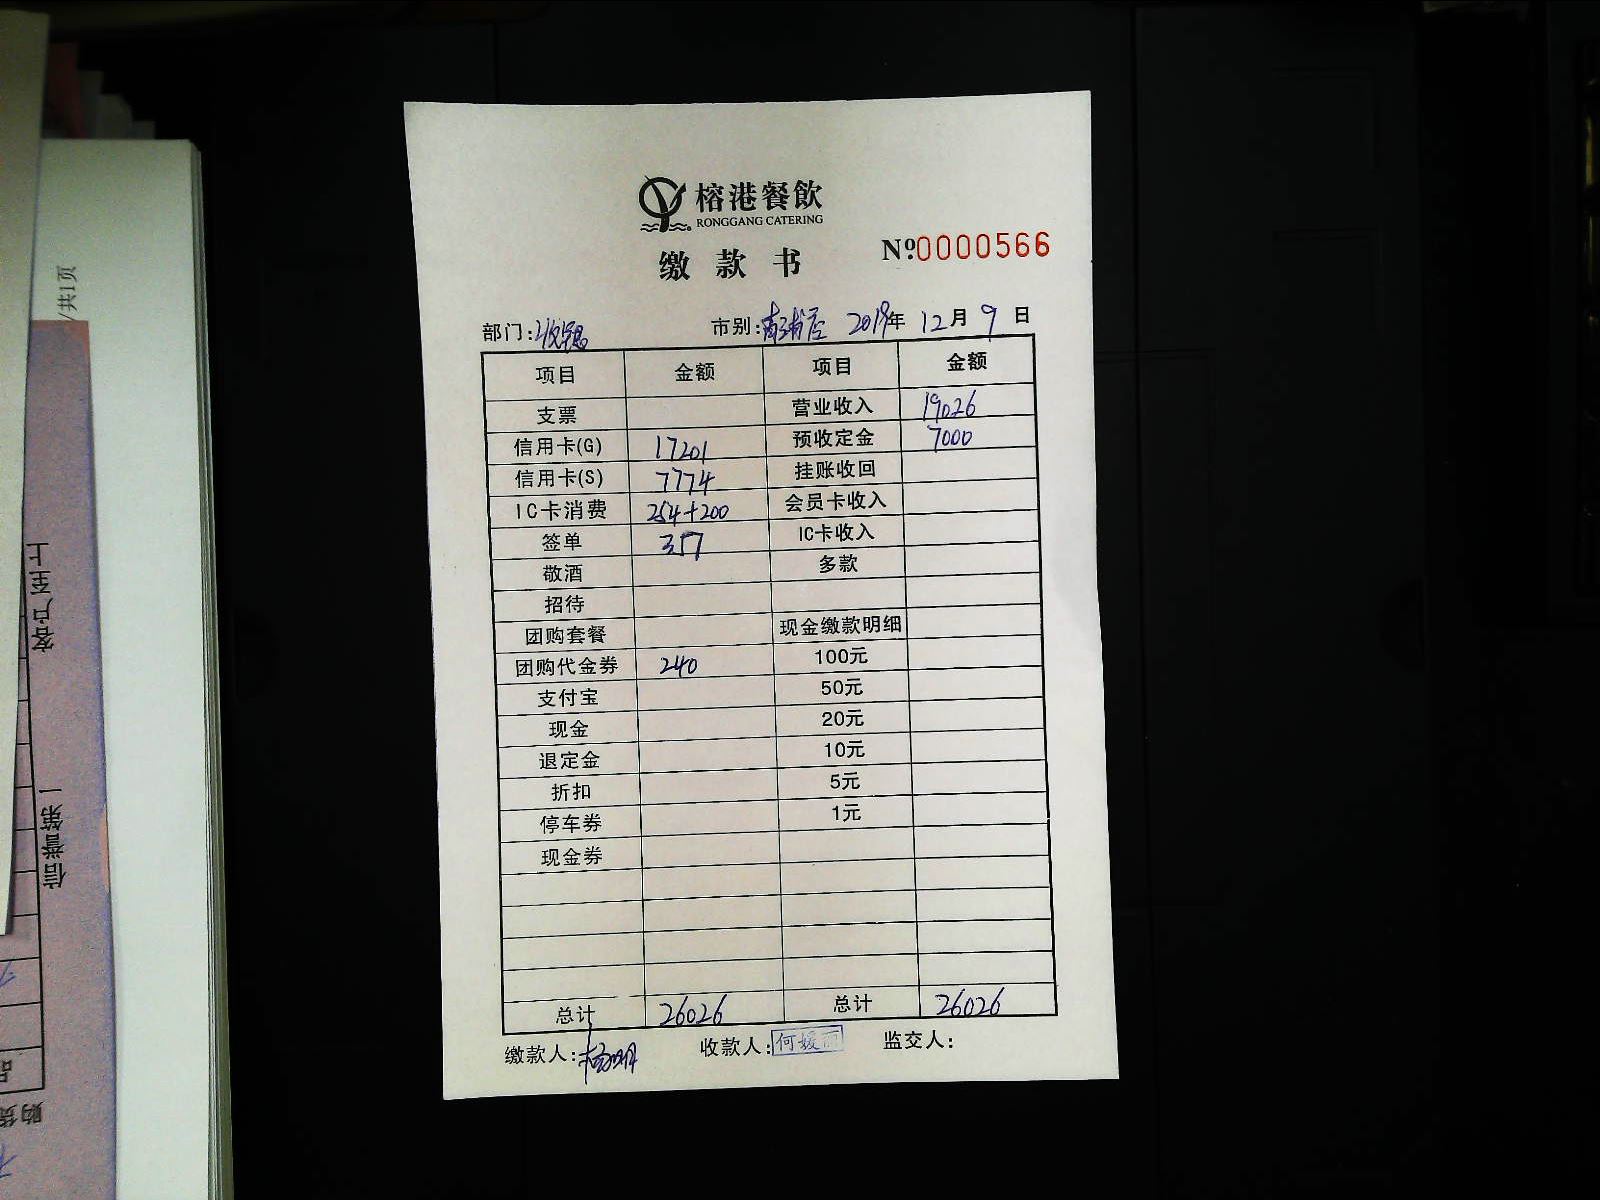 榕港餐飲
RONGGANG CATERING
缴款书
Nº:0000566
部门: 市别: 2019年 12月 9日
项目 金额 项目 金额
支票 营业收入 19026
信用卡(G) 17201 预收定金 7000
信用卡(S) 7774 挂账收回
IC卡消费 254+200 会员卡收入
签单 357 IC卡收入
敬酒 多款
招待
团购套餐 现金缴款明细
团购代金券 240 100元
支付宝 50元
现金 20元
退定金 10元
折扣 5元
停车券 1元
现金券
总计 26026 总计 26026
缴款人: 收款人:何媛丽 监交人:
/共1页
客户至上
信誉第一
品
购货